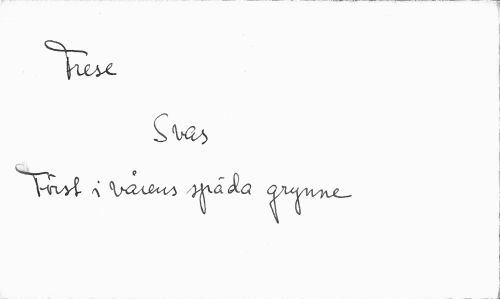 Frese
Svas
Först i vårens späda grynne